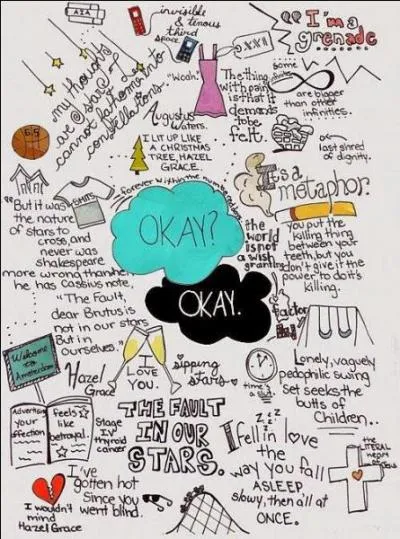 AIA
invisible
& tenous
third
space.
"I'm a
grenade
my thoughts
are stars I
cannot fathom into
constellations.
"Woah."
The thing
with pain
is that it
demands
to be
felt.
Some
infinities
are bigger
than other
infinities.
Augustus
Waters.
I LIT UP LIKE
A CHRISTMAS
TREE, HAZEL
GRACE.
last shred
of dignity.
forever within the numbered days
It's a
metaphor.
SHIRTS
OKAY?
OKAY.
"But it was
the nature
of stars to
cross, and
never was
shakespeare
more wrong than when
he has Cassius note,
"The Fault,
dear Brutus is
not in our stars
But in
ourselves."
the
world
is not
a wish
granting
factory
you put
the killing
thing
between your
teeth, but you
don't give it the
power to do it's
killing.
Welcome
to
Amsterdam
I
LOVE
YOU.
sipping
stars
time's a
slut
Lonely, vaguely
pedophilic swing
set seeks the
butts of
children..
Hazel
Grace
Advertising
your
affection
Feels
like
betrayal.
Stage
IV
thyroid
cancer
THE FAULT
IN OUR
STARS.
z z z z
I fell in love
the
way you fall
ASLEEP
slowy, then all at
ONCE.
the
LITERAL
heart
of
Jesus
I've
gotten hot
Since you
went blind.
I wouldn't
mind
Hazel Grace